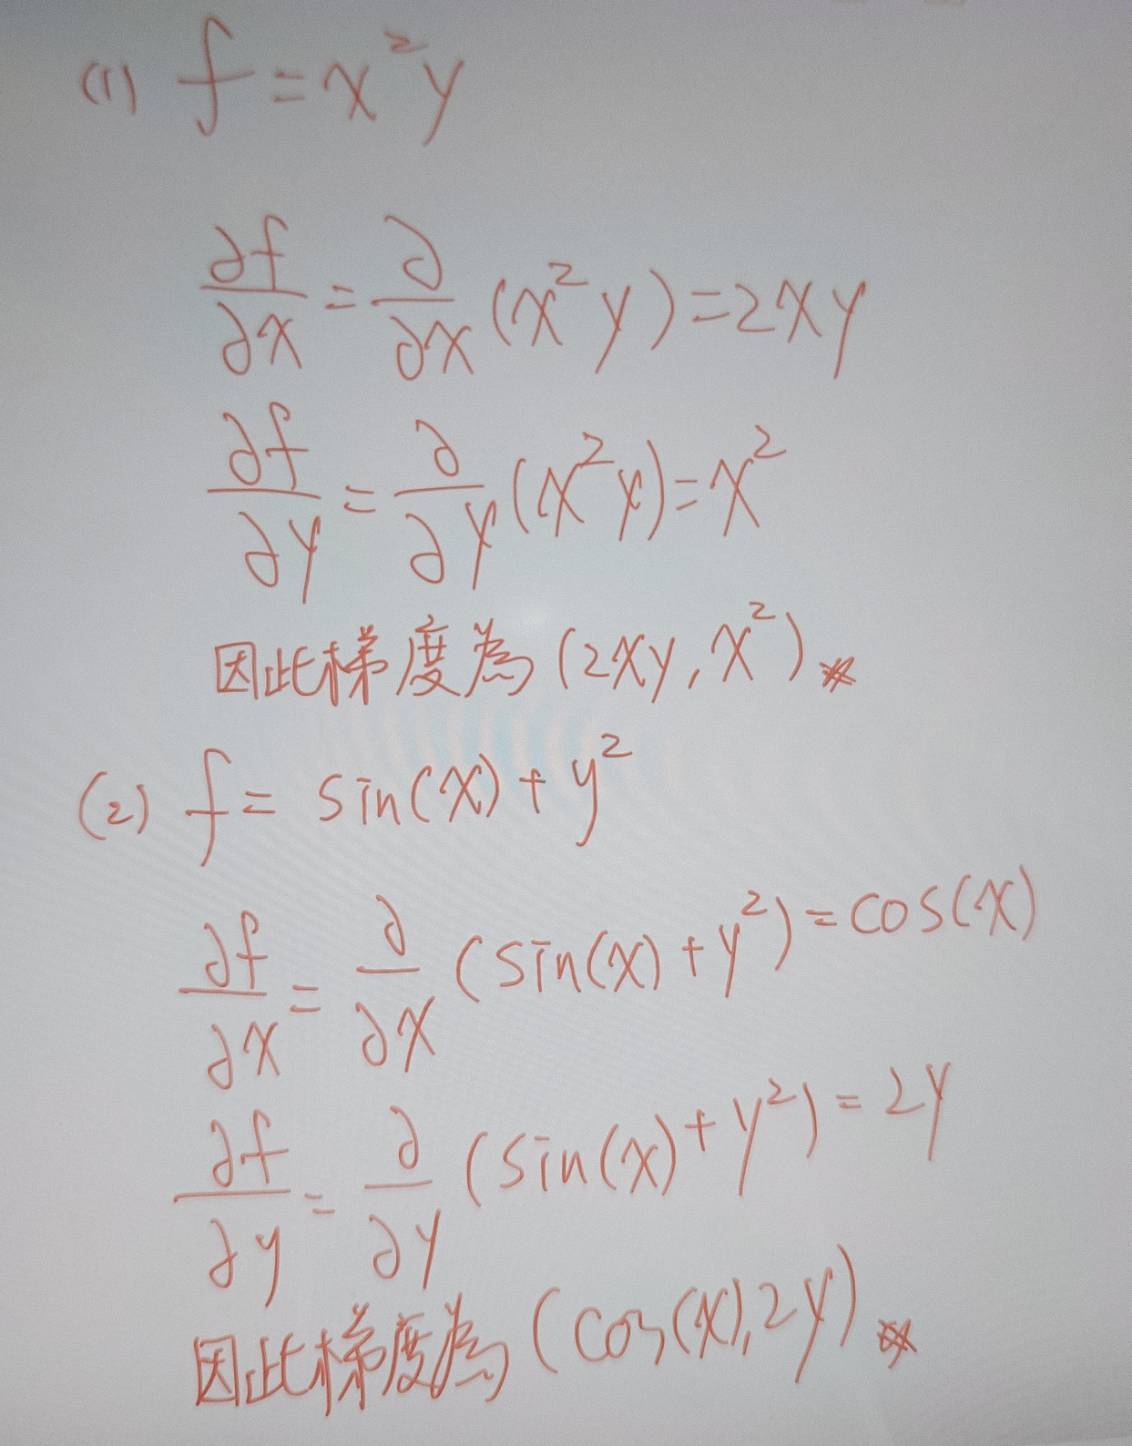 (1) f = x²y
∂f/∂x = ∂/∂x (x²y) = 2xy
∂f/∂y = ∂/∂y (x²y) = x²
因此梯度為 (2xy, x²) ※
(2) f = sin(x) + y²
∂f/∂x = ∂/∂x (sin(x) + y²) = cos(x)
∂f/∂y = ∂/∂y (sin(x) + y²) = 2y
因此梯度為 (cos(x), 2y) ※